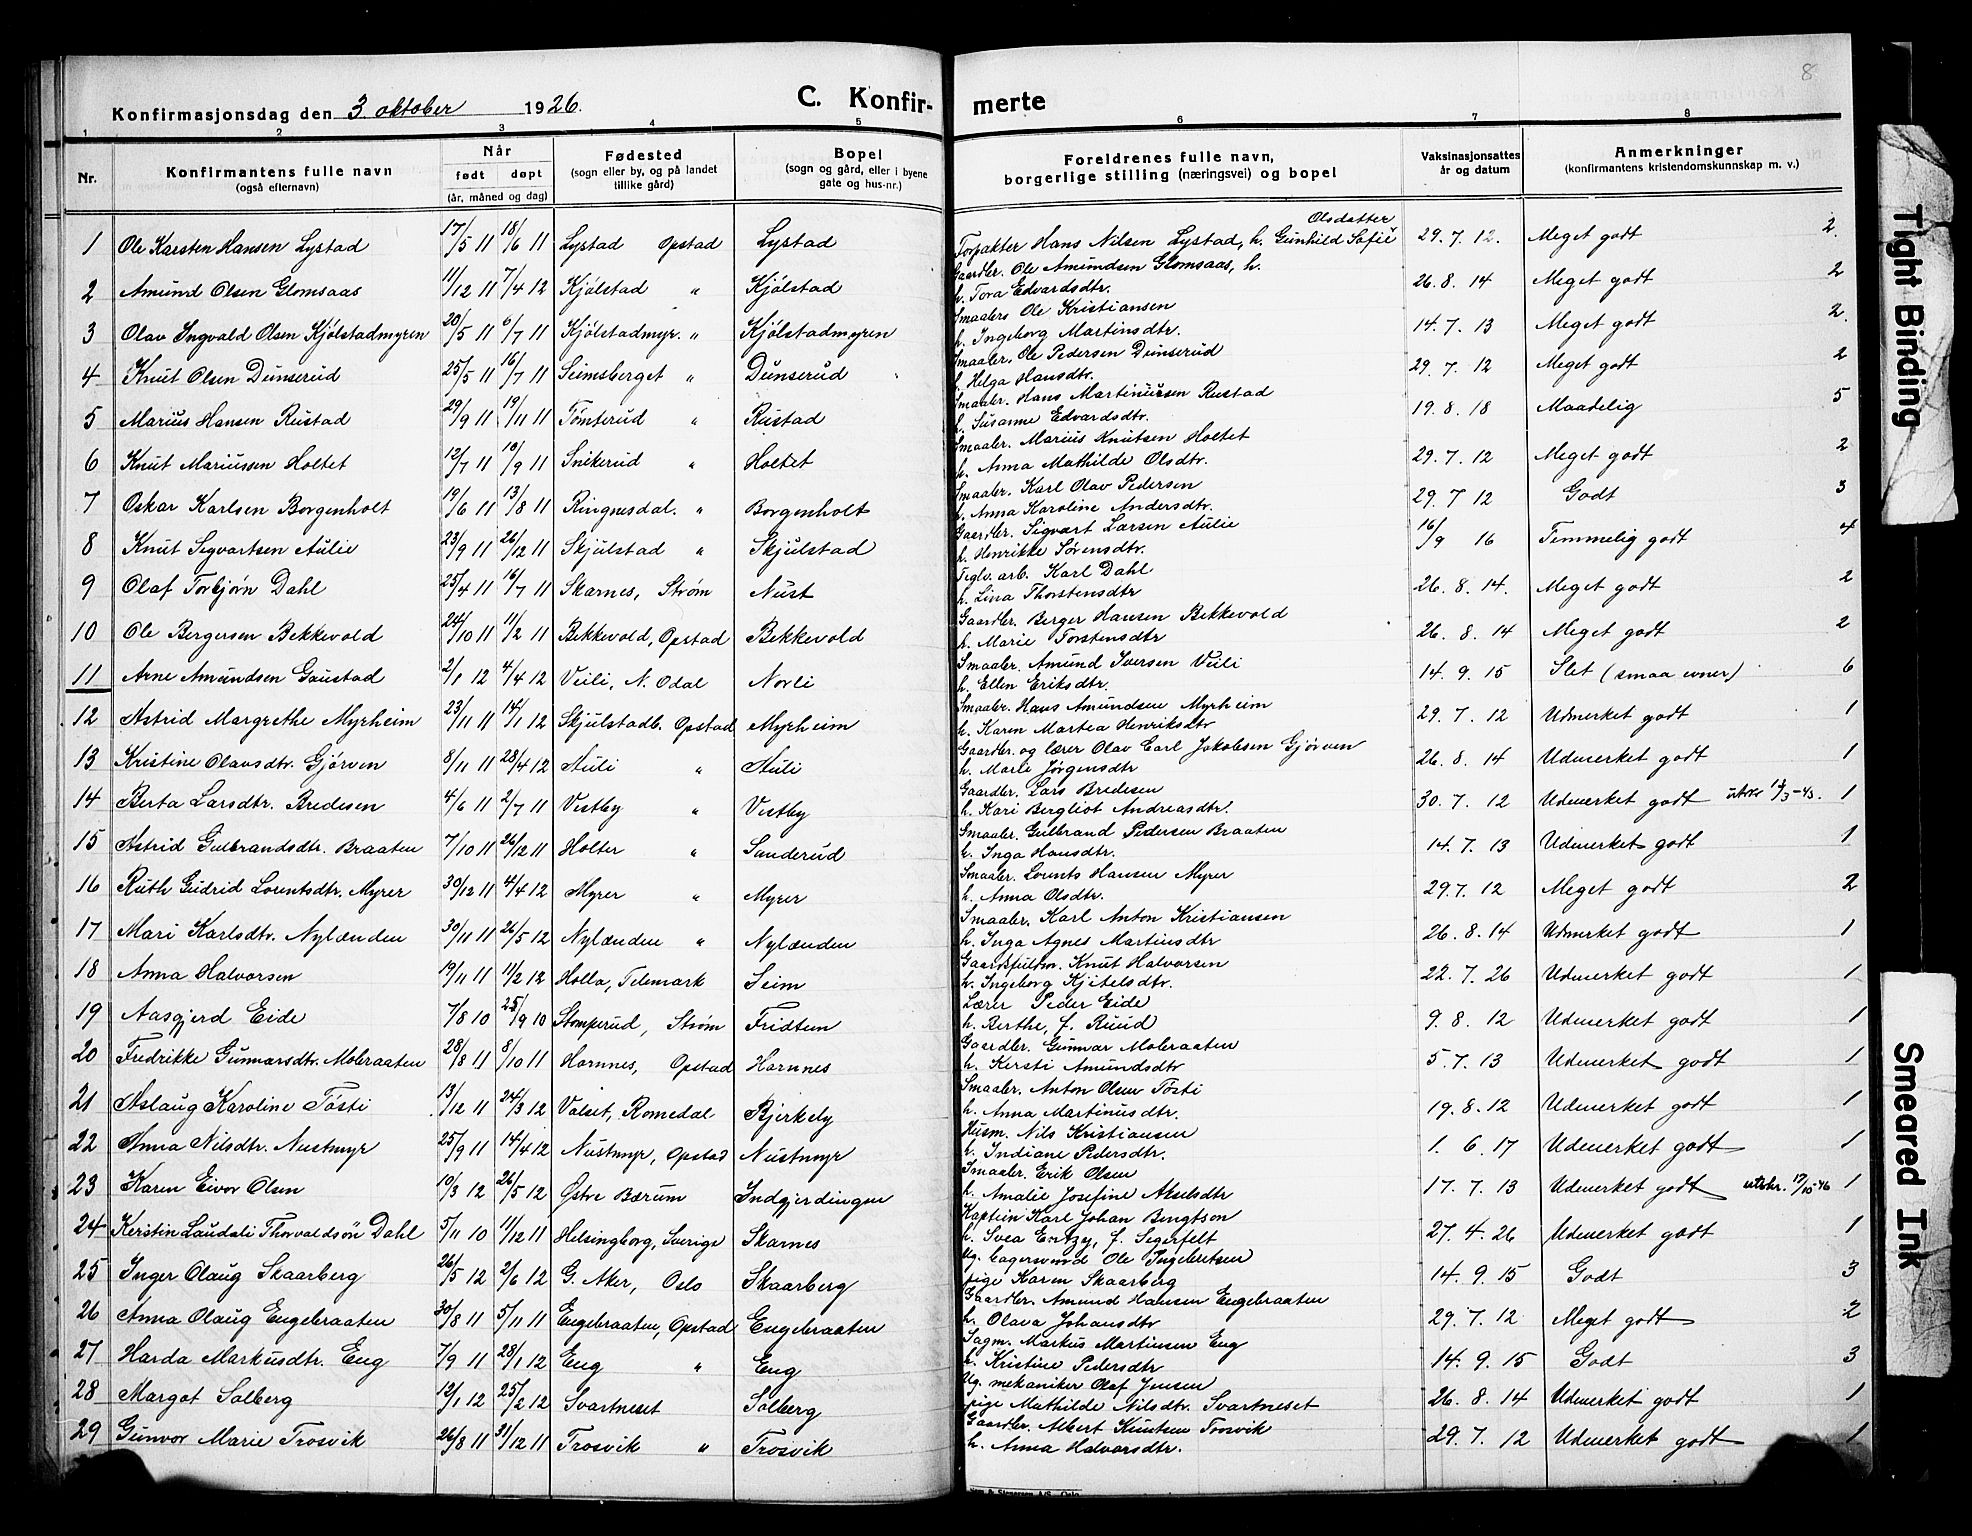 8
Konfirmasjonsdag den 3. oktober 1926.
C. Konfir- merte
1 2 3 4 5 6 7 8
Nr.
Konfirmantens fulle navn
(også efternavn)
Når
født døpt
(år, måned og dag)
Fødested
(sogn eller by, og på landet
tillike gård)
Bopel
(sogn og gård, eller i byene
gate og hus-nr.)
Foreldrenes fulle navn,
borgerlige stilling (næringsvei) og bopel
Vaksinasjonsattes
år og datum
Anmerkninger
(konfirmantens kristendomskunnskap m. v.)
Olsdatter
1 Ole Karsten Hansen Lystad 17/5 11 18/6 11 Lystad Opstad Lystad Forpakter Hans Nilsen Lystad, h. Gunhild Sofie 29.7.12. Meget godt 2.
2 Amund Olsen Glomsaas 11/12 11 7/4 12 Kjölstad " Kjölstad Gaardbr. Ole Amundsen Glomsaas, h. 26.8.14 Meget godt 2
h. Tora Edvardsdtr.
3 Olav Ingvald Olsen Kjölstadmyren 20/5 11 6/7 11 Kjölstadmyr. " Kjölstadmyren Smaabr. Ole Kristiansen 14.7.13 Meget godt 2.
h. Ingeborg Martinsdtr.
4 Knut Olsen Dunserud 25/5 11 16/7 11 Seimsberget " Dunserud Smaabr. Ole Pedersen Dunserud 29.7.12 Meget godt 2
h. Helga Hansdtr.
5 Marius Hansen Rustad 29/9 11 19/11 11 Tömterud " Rustad Smaabr. Hans Martiniusen Rustad 19.8.18 Maadelig 5
h. Susanne Edvardsdtr.
6 Knut Mariussen Holtet 12/7 11 10/9 11 Snikerud " Holtet Smaabr. Marius Knutsen Holtet 29.7.12 Meget godt 2
h. Anna Mathilde Olsdtr.
7 Oskar Karlsen Borgenholt 19/6 11 13/8 11 Ringnesdal. " Borgenholt Smaabr. Karl Olav Pedersen 29.7.12 Godt 3
h. Anna Karoline Andersdtr.
8 Knut Segvartsen Aulie 23/9 11 26/12 11 Skjulstad " Skjulstad Gaardbr. Sigvart Larsen Aulie 16/9 16 Temmelig godt 4
h. Henrikke Sörensdtr.
9 Olaf Torbjörn Dahl 25/4 11 16/7 11 Skarnes, Ström Nust Teglv. arb. Karl Dahl 26.8.14. Meget godt 2
h. Lina Thorstensdtr
10 Ole Bergersen Bekkevold 24/10 11 11/2 11 Bekkevold, Opstad Bekkevold Gaardbr. Berger Hansen Bekkevold 26.8.14 Meget godt 2
h. Marie Torstensdtr
11 Arne Amundsen Gaustad 2/1 12 4/4 12 Veili, N. Odal Norli Smaabr. Amund Iversen Veili 14.9.15 Slet (smaa evner) 6
h. Ellen Eriksdtr.
12 Astrid Margrethe Myrheim 23/11 11 14/1 12 Skjulstadb. Opstad Myrheim Smaabr. Hans Amundsen Myrheim 29.7.12 Udmerket godt 1
h. Karen Martea Henriksdtr
13 Kristine Olavsdtr. Gjörven 8/11 11 28/4 12 Auli " Auli Gaardbr. og lærer Olav Carl Jakobsen Gjörven 26.8.14 Udmerket godt 1
h. Marie Jörgensdtr
14 Berta Larsdtr. Bredesen 4/6 11 2/7 11 Vestby " Vestby Gaardbr. Lars Bredesen 30.7.12 Udmerket godt 1
h. Kari Bergliot Andreasdtr.
15 Astrid Gulbrandsdtr. Braaten 7/10 11 26/12 11 Holter " Sanderud Smaabr. Gulbrand Pedersen Braaten 14.7.13 Udmerket godt 1
h. Inga Hansdtr.
16 Ruth Gudrid Lorentsdtr. Myrer 30/12 11 4/4 12 Myrer " Myrer Smaabr. Lorents Hansen Myrer 29.7.12 Meget godt 2
h. Anna Olsdtr.
17 Mari Karlsdtr. Nylænden 30/11 11 26/5 12 Nylænden " Nylænden Smaabr. Karl Anton Kristiansen 26.8.14 Udmerket godt 1
h. Inga Agnes Martinsdtr
18 Anna Halvorsen 19/11 11 11/2 12 Holla, Telemark Seim Gaardsfuldm. Knut Halvorsen 22.7.26 Udmerket godt 1
h. Ingeborg Kjitelsdtr.
19 Aasgjerd Eide 7/8 10 25/9 10 Stomperud, Ström Fridtun Lærer Peder Eide 9.8.12 Udmerket godt 1
h. Berthe, f. Ruud
20 Fredrikke Gunnarsdtr. Mobraaten 28/8 11 8/10 11 Hornnes, Opstad Hornnes Gaardbr. Gunnar Mobraaten 5.7.13 Udmerket godt 1
h. Kersti Amundsdtr
21 Aslaug Karoline Tösti 13/12 11 24/3 12 Valset, Romedal Bjerkely Smaabr. Anton Olsen Tösti 19.8.12 Udmerket godt 1
h. Anna Martinusdtr.
22 Anna Nilsdtr. Nustmyr 25/9 11 14/4 12 Nustmyr, Opstad Nustmyr Husm. Nils Kristiansen 1.6.17 Udmerket godt 1
h. Indiane Pedersdtr.
23 Karen Eivor Olsen 10/3 12 26/5 12 Östre Bærum Indgjerdingen Smaabr. Erik Olsen 17.7.13 Udmerket godt utskr. 17/10-46 1
h. Amalie Josefine Akselsdtr
24 Kerstin Laudali Thorvaldsön Dahl 5/11 10 11/12 11 Helsingborg, Sverige Skarnes Kaptein Karl Johan Bengtson 27.4.26 Udmerket godt 1
h. Svea f. Segerfelt
25 Inger Olaug Skaarberg 26/5 12 2/6 12 G. Aker, Oslo Skaarberg Ug. Lagersvend Ole Ingebretsen 14.9.15 Godt 3
pige Karen Skaarberg
26 Anna Olaug Engebraaten 30/8 11 5/11 11 Engebraaten, Opstad Engebraaten Gaardbr. Amund Hansen Engebraaten 29.7.12 Meget godt 2
h. Olava Johansdtr
27 Harda Markusdtr. Eng 7/9 11 28/1 12 Eng " Eng Sagm. Markus Martinsen Eng 14.9.15 Godt 3
h. Kristine Pedersdtr
28 Margot Solberg 12/1 12 25/2 12 Svartneset Solberg Ug. mekaniker Olaf Jensen 26.8.14 Udmerket godt 1
pige Mathilde Nilsdtr. Svartneset
29 Gunvor Marie Trosvik 26/8 11 31/12 11 Trosvik " Trosvik Gaardbr. Albert Knutsen Trosvik 29.7.12 Udmerket godt 1
h. Anna Halvorsdtr.
Tight Binding
Smeared Ink